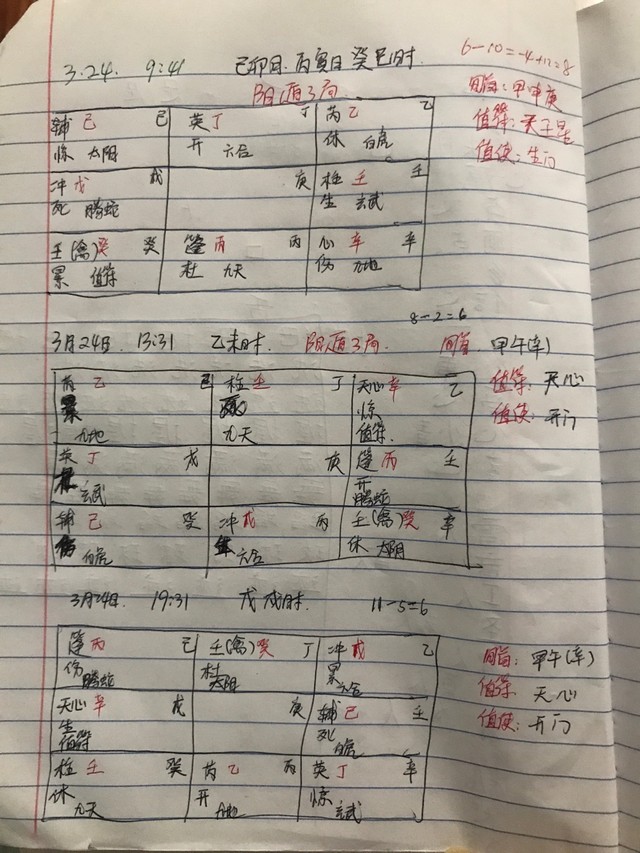 6-10=-4+12=8
3.24. 9:41 己卯月.丙寅日 癸巳时.
阳遁3局
旬首:甲申庚
值符:天壬星
值使:生门
辅 己 己 英 丁 丁 芮 乙 乙
惊 太阴 开 六合 休 白虎
冲 戊 戊 庚 柱 壬 壬
死 腾蛇 生 玄武
壬(禽)癸 癸 蓬 丙 丙 心 辛 辛
景 值符 杜 九天 伤 九地
8-2=6
3月24日. 13:31 乙未时. 阳遁3局 旬首. 甲午(辛)
值符: 天心
值使: 开门
芮 乙 己 柱 壬 丁 天心辛 乙
景 死 惊
九地 九天 值符.
英 丁 戊 庚 蓬 丙 壬
杜 玄武 开 腾蛇
辅 己 癸 冲 戊 丙 壬(禽)癸 辛
伤 白虎 生 六合 休 太阴
3月24日. 19:31 戊戌时. 11-5=6
旬首: 甲午(辛)
值符: 天心
值使: 开门
蓬 丙 己 壬(禽)癸 丁 冲 戊 乙
伤 腾蛇 杜 太阴 景 六合
天心 辛 戊 庚 辅 己 壬
生 值符 死 虎
柱 壬 癸 芮 乙 丙 英 丁 辛
休 九天 开 九地 惊 玄武